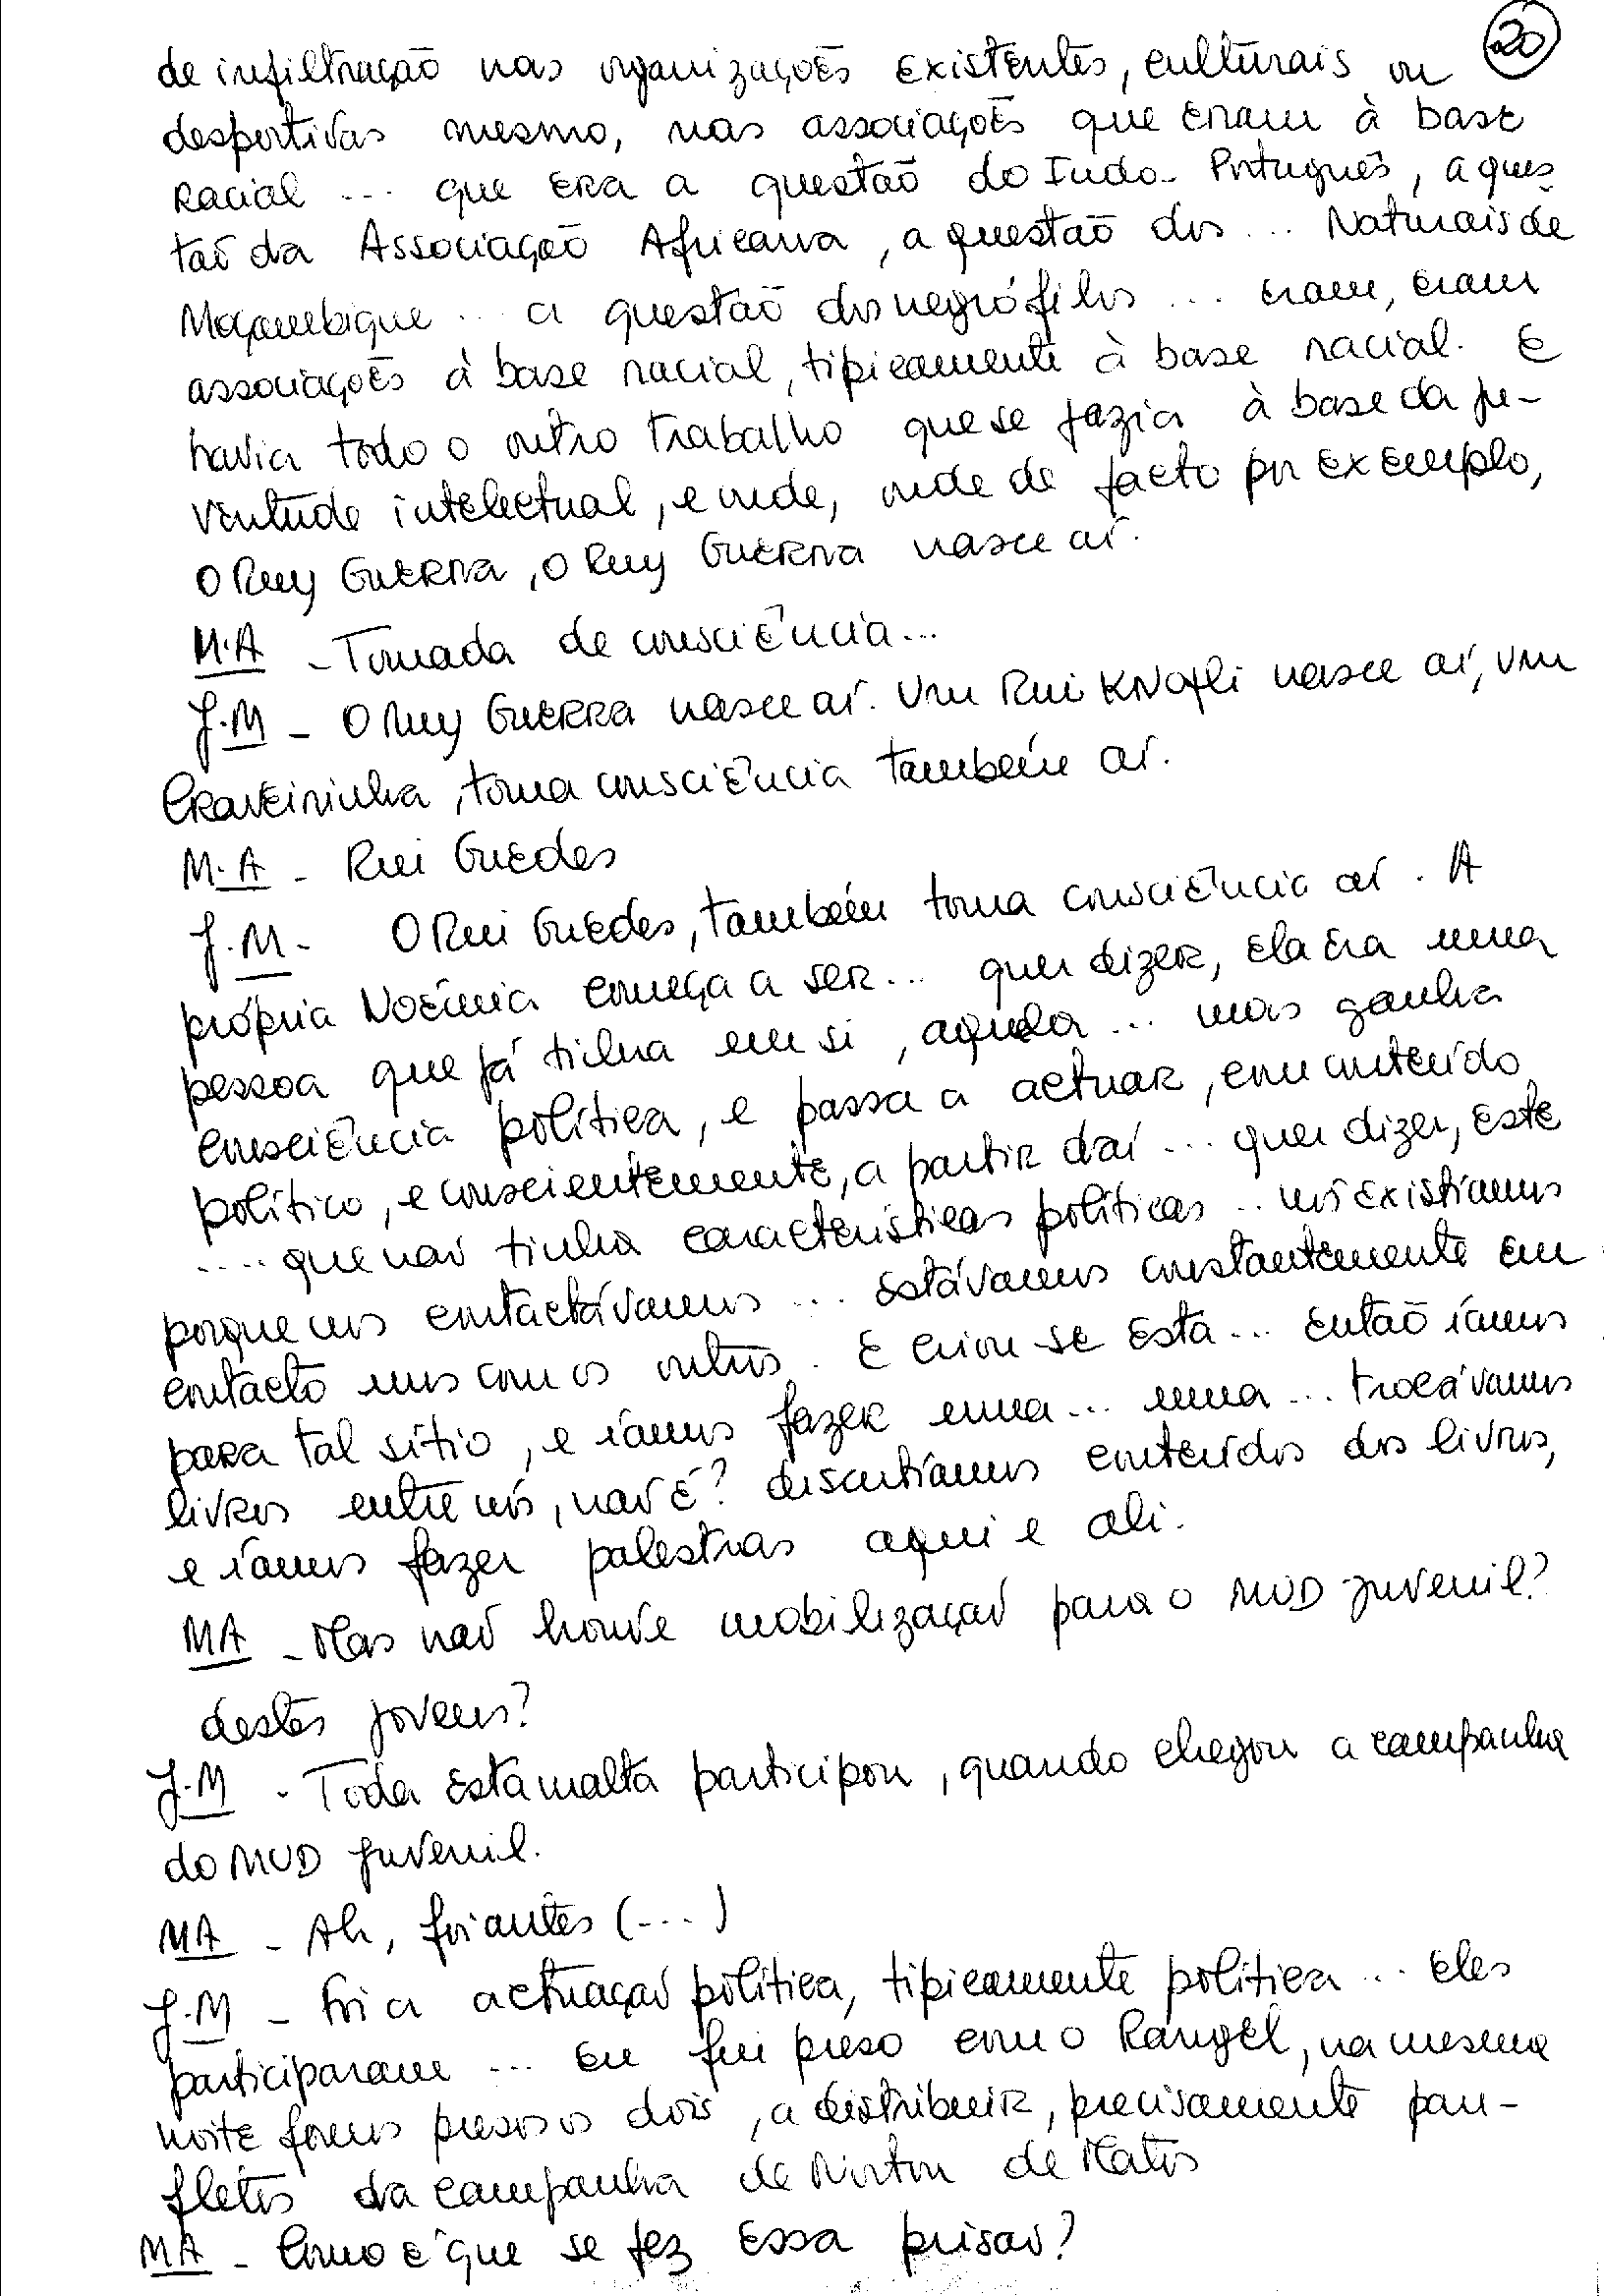 20
de infiltração nas organizações existentes, culturais ou
desportivas mesmo, nas associações que eram à base
racial ... que era a questão do Indo-Português, a ques-
tão da Associação Africana, a questão dos ... Naturais de
Moçambique ... a questão dos negrófilos ... eram, eram
associações à base racial, tipicamente à base racial. E
havia todo o outro trabalho que se fazia à base da ju-
ventude intelectual, e onde, onde de facto por exemplo,
o Ruy Guerra, o Ruy Guerra nasce aí.
M.A - Tomada de consciência...
J.M - O Ruy Guerra nasce aí. Um Rui Knofli nasce aí, um
Craveirinha, toma consciência também aí.
M.A - Rui Guedes
J.M - O Rui Guedes, também toma consciência aí. A
própria Noémia começa a ser... quer dizer, ela era uma
pessoa que já tinha em si, aquela ... mas ganha
consciência política, e passa a actuar, em conteúdo
político, e conscientemente, a partir daí ... quer dizer, este
.... que não tinha características políticas ... nós existíamos
porque nos contactávamos ... estávamos constantemente em
contacto uns com os outros. E criou-se esta ... então íamos
para tal sítio, e íamos fazer uma ... uma ... trocávamos
livros entre nós, não é? discutíamos conteúdos dos livros,
e íamos fazer palestras aqui e ali.
MA - Mas não houve mobilização para o MUD juvenil?
destes jovens?
J.M - Toda esta malta participou, quando chegou a campanha
do MUD juvenil.
MA - Ah, foi antes (...)
J.M - Foi a actuação política, tipicamente política ... eles
participaram ... eu fui preso com o Rangel, na mesma
noite fomos presos os dois, a distribuir, precisamente pan-
fletos da campanha de Norton de Matos
MA - Como é que se fez essa prisão?